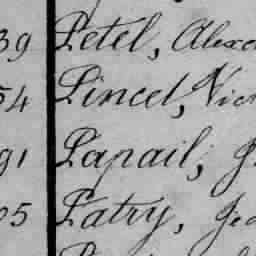 39 Petel, Alex
54 Pincel, Vic
91 Papail, J
05 Patry, Jea